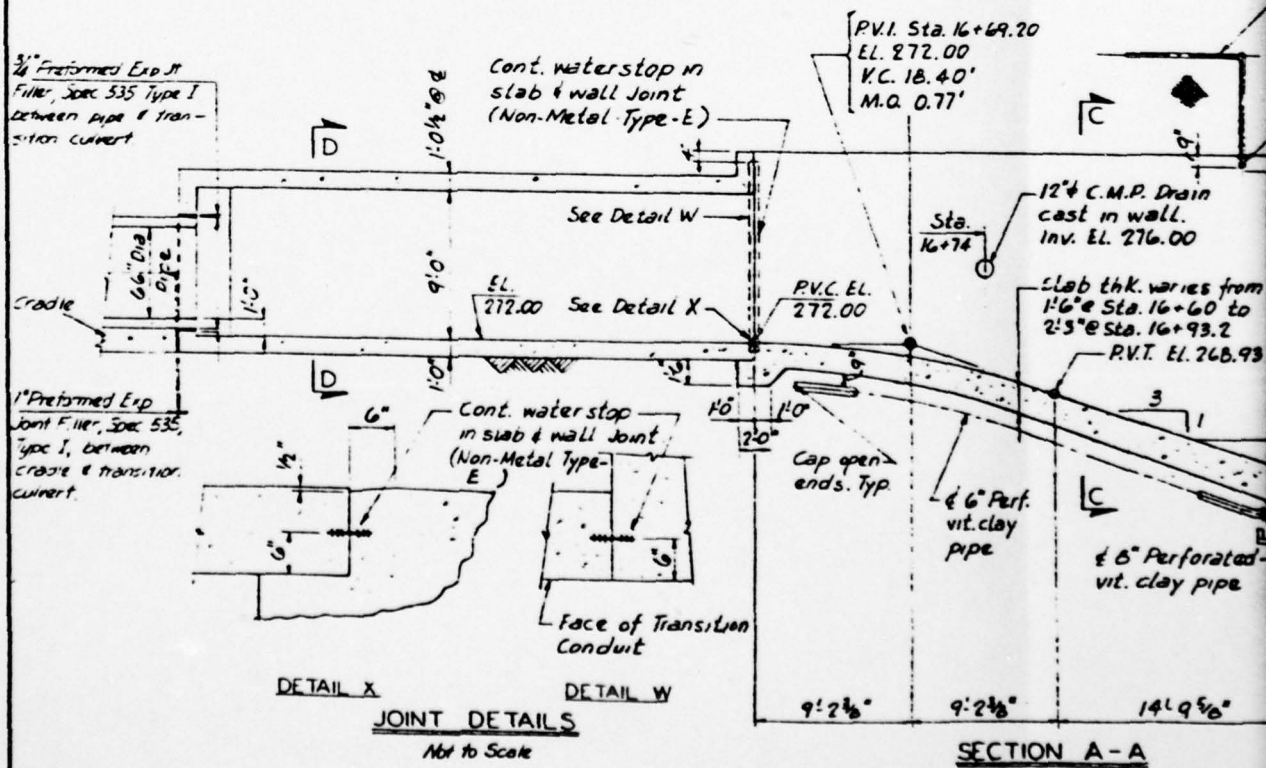 3/4" Preformed Exp Jt
Filler, Spec 535 Type I
between pipe & tran-
sition culvert
D
1'-0½" @ ¢
Cont. waterstop in
slab & wall Joint
(Non-Metal Type-E)
4"
P.V.I. Sta. 16+69.20
EL. 272.00
V.C. 18.40'
M.O. 0.77'
C
9"
12"ϕ C.M.P. Drain
cast in wall.
Inv. EL. 276.00
Sta.
16+74
See Detail W
66" Dia
pipe
1'-0"
9'-0"
Cradle
EL.
272.00
See Detail X
P.V.C. EL.
272.00
Slab thk. varies from
1'-6" @ Sta. 16+60 to
2'-3" @ Sta. 16+93.2
P.V.T. EL. 268.93
D
1'-0"
1'-6"
9"
3
1
1" Preformed Exp
Joint Filler, Spec 535,
Type I, between
cradle & transition
culvert.
6"
Cont. waterstop
in slab & wall Joint
(Non-Metal Type-
E
1'-0"
1'-0"
2'-0"
Cap open
ends. Typ.
¢ 6" Perf.
vit. clay
pipe
C
¢ 8" Perforated
vit. clay pipe
½"
6"
6"
Face of Transition
Conduit
DETAIL X
DETAIL W
JOINT DETAILS
Not to Scale
9'-2⅜"
9'-2⅜"
14'-9⅝"
SECTION A-A